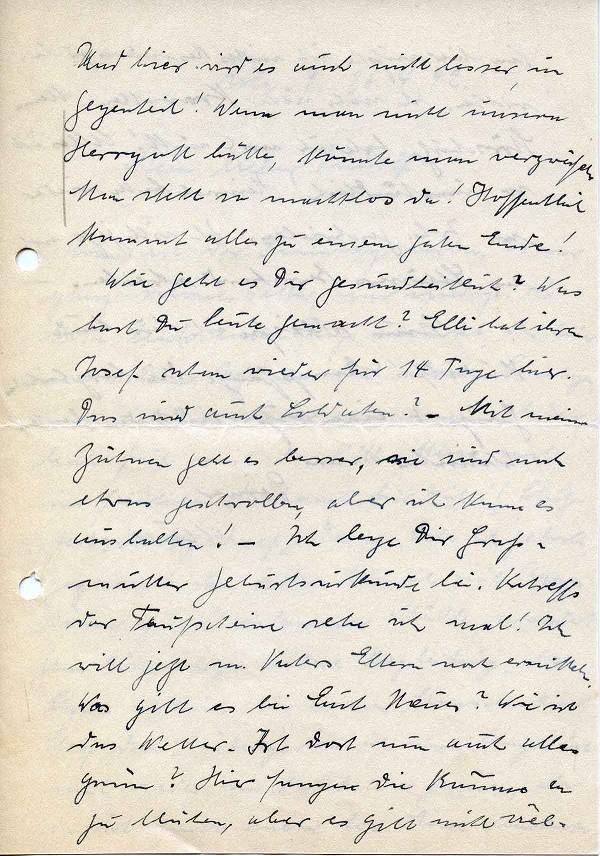 Und hier wird es auch nicht besser, im
Gegenteil! Wenn man nicht unsern
Herrgott hätte, könnte man verzweifeln
Man steht so machtlos da! Hoffentlich
kommt alles zu einem guten Ende!
Wie geht es Dir gesundheitlich? Was
hast Du heute gemacht? Elli hat ihren
Josef schon wieder für 14 Tage hier.
Das sind auch Soldaten? - Mit meinen
Zähnen geht es besser, sie sind noch
etwas geschwollen, aber ich kann es
aushalten! - Ich lege Dir Groß-
mutter Geburtsurkunde bei. Betreffs
der Taufscheine sehe ich mal! Ich
will jetzt m. Vaters Eltern noch ermitteln.
Was gibt es bei Euch Neues? Wie ist
das Wetter. Ist dort nun auch alles
grün? Hier fangen die Bäume an
zu blühen, aber es gibt nicht viel-